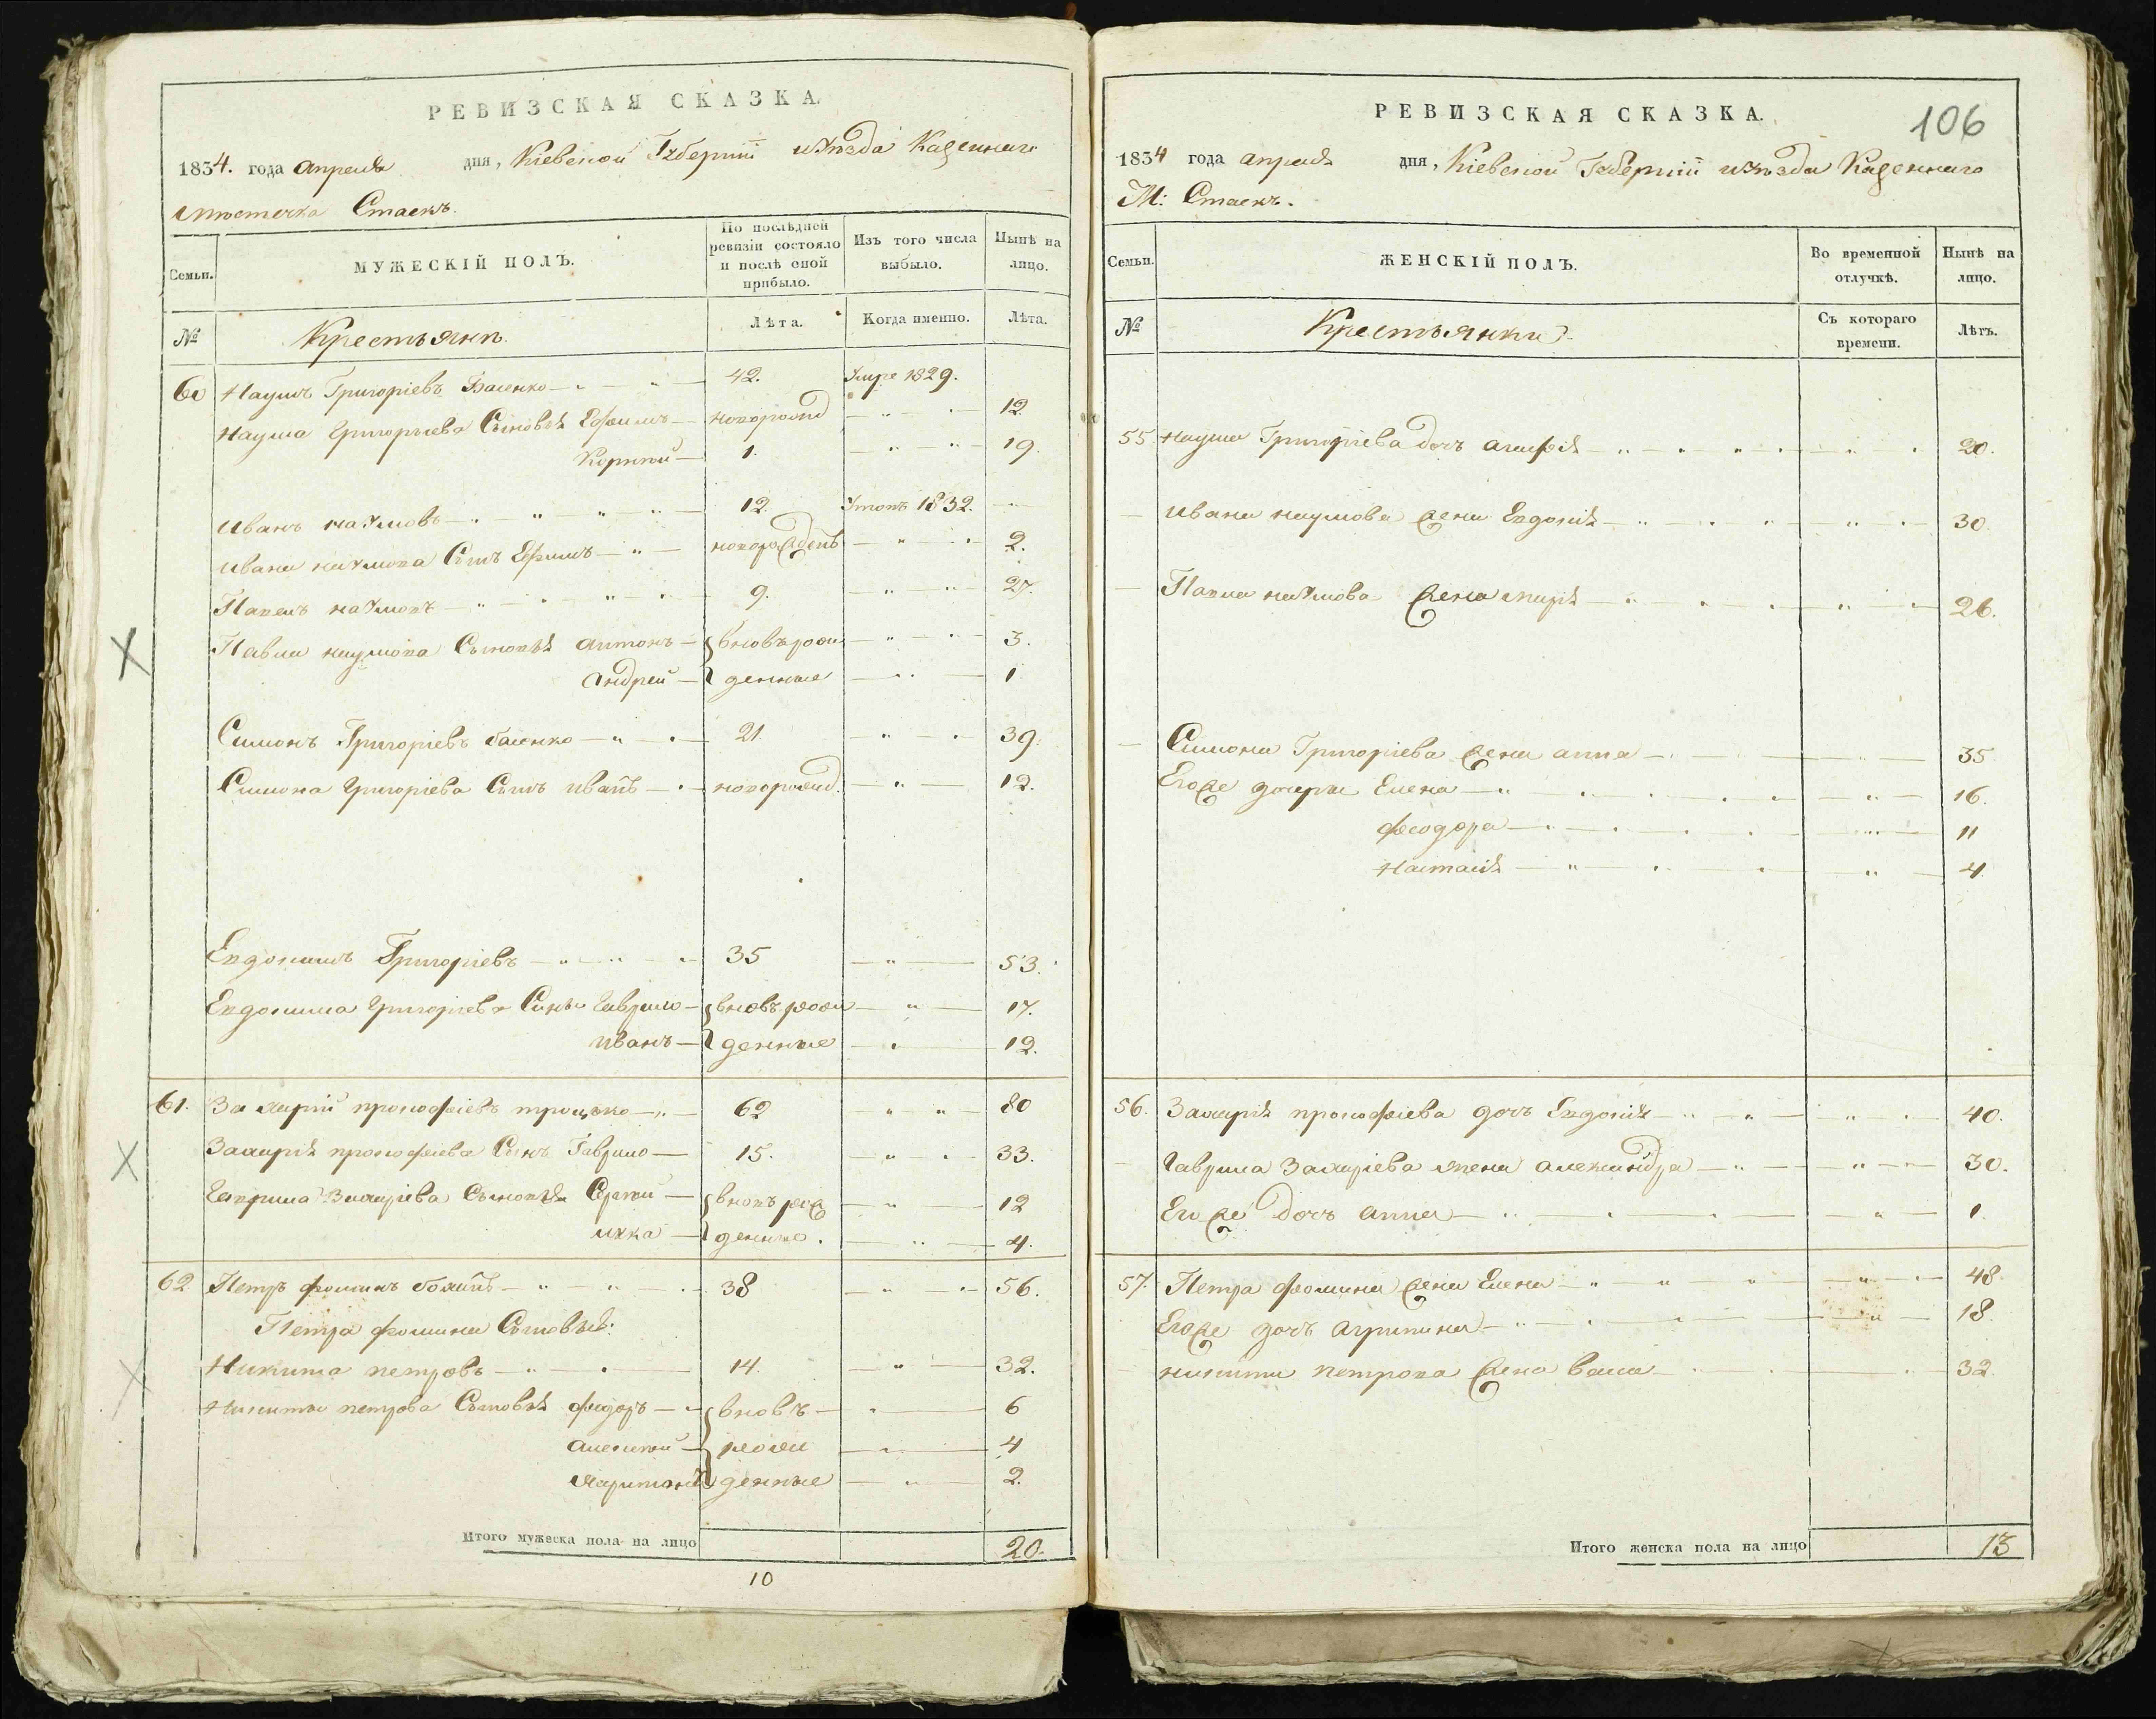 РЕВИЗСКАЯ СКАЗКА.
1834. года апреля дня, Кіевской Губерніи уѣзда Казеннаго
мѣстечка Стаекъ.
Семьи.
МУЖЕСКІЙ ПОЛЪ.
По послѣдней ревизіи состояло и послѣ оной прибыло.
Изъ того числа выбыло.
Нынѣ на лицо.
№ Крестьяне. Лѣта. Когда именно. Лѣта.
60 Наумъ Григоріевъ 42. Умре 1829.
Наума Григорьева Сыновья Ефимъ новорожд 12.
Корній 1. 19.
Иванъ наумовъ 12. 1832.
Ивана наумова Сынъ Ефимъ новорожденъ 2.
Павелъ наумовъ 9. 27.
Павла наумова Сыновья антонъ вновь рож 3.
андрей денные 1
Симонъ Григоріевъ 21. 39.
Симона Григоріева Сынъ иванъ новорожд. 12.
Евдокимъ Григоріевъ 35 53.
Евдокима Григоріева Сины Гаврило вновь рож 17.
иванъ денные 12.
61. Захарій прокофіевъ троцько 62 80
Захарія прокофіева Синъ Гаврило 15. 33.
Гаврила Захаріева Сыновья Сергій вновь рож 12
денные. 4.
62 Петръ фоминъ 38 56.
Петра фомина Сыновья:
Никита петровъ 14. 32.
Никиты петрова Сыновья федоръ вновь 6
алексѣй рож 4
харитонъ денные 2.
Итого мужеска пола на лицо 20.
10
106
РЕВИЗСКАЯ СКАЗКА.
1834 года апреля дня, Кіевской Губерніи уѣзда Казеннаго
М: Стаекъ.
Семьи.
ЖЕНСКІЙ ПОЛЪ.
Во временной отлучкѣ.
Нынѣ на лицо.
№ Крестьянки Съ котораго времени. Лѣтъ.
55 Наума Григоріева дочь 20.
Ивана наумова жена Евдокія 30.
Павла наумова жена марія 26.
Симона Григоріева жена анна 35
Егоже дочери Елена 16.
феодора 11
Настасія 4
56. Захарія прокофіева дочь Евдокія 40.
Гаврила Захаріева жена александра 30.
Егоже дочь анна 1.
57. Петра фомина жена Елена 48.
Егоже дочь агрипина 18.
никиты петрова жена 32.
Итого женска пола на лицо 13